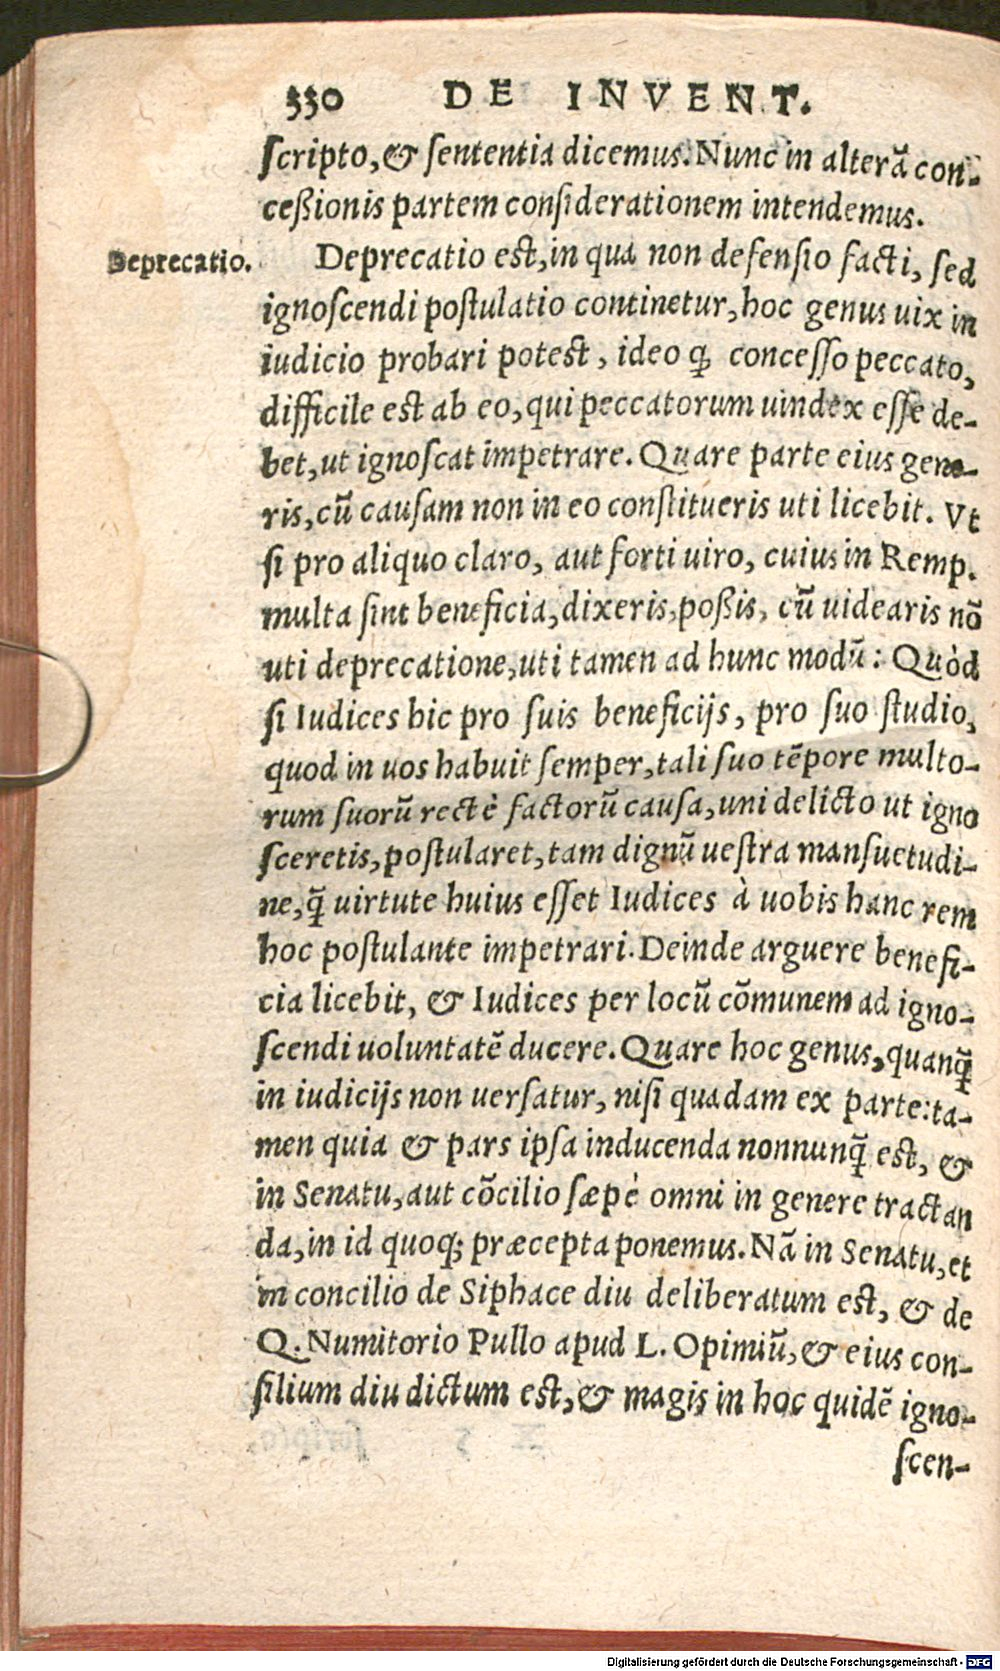 330 DE INVENT.
scripto, & sententia dicemus. Nunc in alterã con-
ceßionis partem considerationem intendemus.
Deprecatio.
Deprecatio est, in qua non defensio facti, sed
ignoscendi postulatio continetur, hoc genus uix in
iudicio probari potest, ideo ꝙ concesso peccato,
difficile est ab eo, qui peccatorum uindex esse de-
bet, ut ignoscat impetrare. Quare parte eius gene-
ris, cũ causam non in eo constitueris uti licebit. Vt
si pro aliquo claro, aut forti uiro, cuius in Remp.
multa sint beneficia, dixeris, poßis, cũ uidearis nõ
uti deprecatione, uti tamen ad hunc modũ: Quòd
si Iudices hic pro suis beneficijs, pro suo studio,
quod in uos habuit semper, tali suo tẽpore multo-
rum suorũ rectè factorũ causa, uni delicto ut igno
sceretis, postularet, tam dignũ uestra mansuetudi-
ne, q̃ uirtute huius esset Iudices à uobis hanc rem
hoc postulante impetrari. Deinde arguere benefi-
cia licebit, & Iudices per locũ cõmunem ad igno-
scendi uoluntatẽ ducere. Quare hoc genus, quanq̃
in iudicijs non uersatur, nisi quadam ex parte: ta-
men quia & pars ipsa inducenda nonnunq̃ est, &
in Senatu, aut cõcilio sæpè omni in genere tractan
da, in id quoq; præcepta ponemus. Nã in Senatu, et
in concilio de Siphace diu deliberatum est, & de
Q. Numitorio Pullo apud L. Opimiũ, & eius con-
silium diu dictum est, & magis in hoc quidẽ igno-
scen-
Digitalisierung gefördert durch die Deutsche Forschungsgemeinschaft - DFG